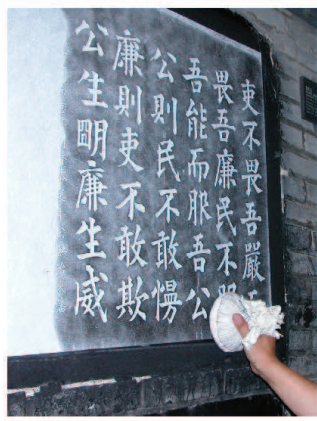 吏不畏吾嚴
畏吾廉民不服
吾能而服吾公
公則民不敢慢
廉則吏不敢欺
公生明廉生威